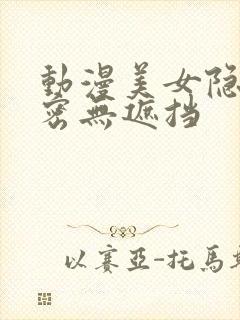 動漫美女隐
密無遮挡
以賽亞-托馬斯